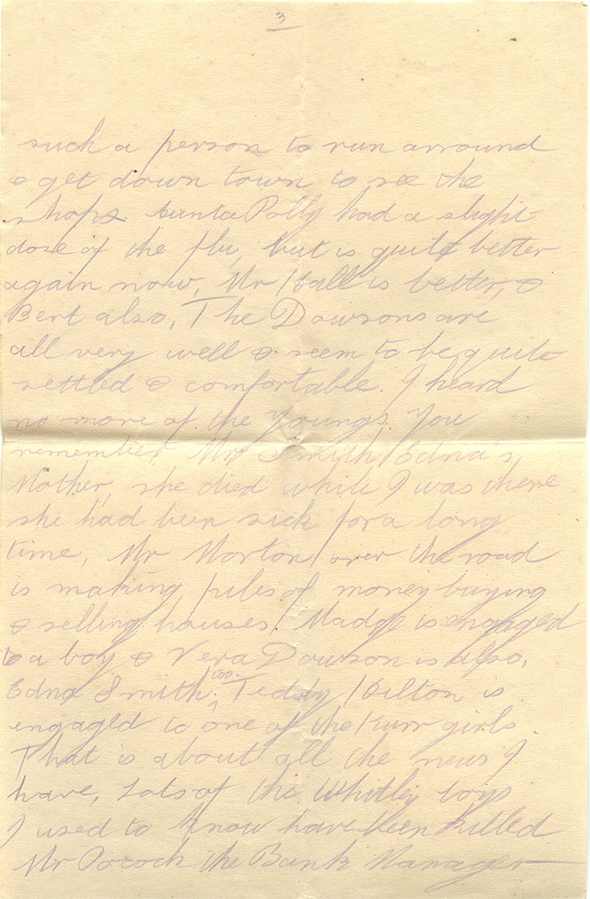 3
such a person to run arround
& get down town to see the
shops. Auntie Polly had a slight
dose of the flu, but is quite better
again now, Mr Hall is better, &
Bert also, The Dawsons are
all very well & seem to be quite
settled & comfortable. I heard
no more of the Youngs. You
remember Mrs Smith Edna's
Mother, she died while I was there
she had been sick for a long
time, Mr Morton over the road
is making piles of money buying
& selling houses. Madge is engaged
to a boy & Vera Dawson is also,
Edna Smith, too. Teddy Hilton is
engaged to one of the Kurr girls.
That is about all the news I
have, Lots of the Whitley boys
I used to know have been killed
Mr Pocock the Bank Manager